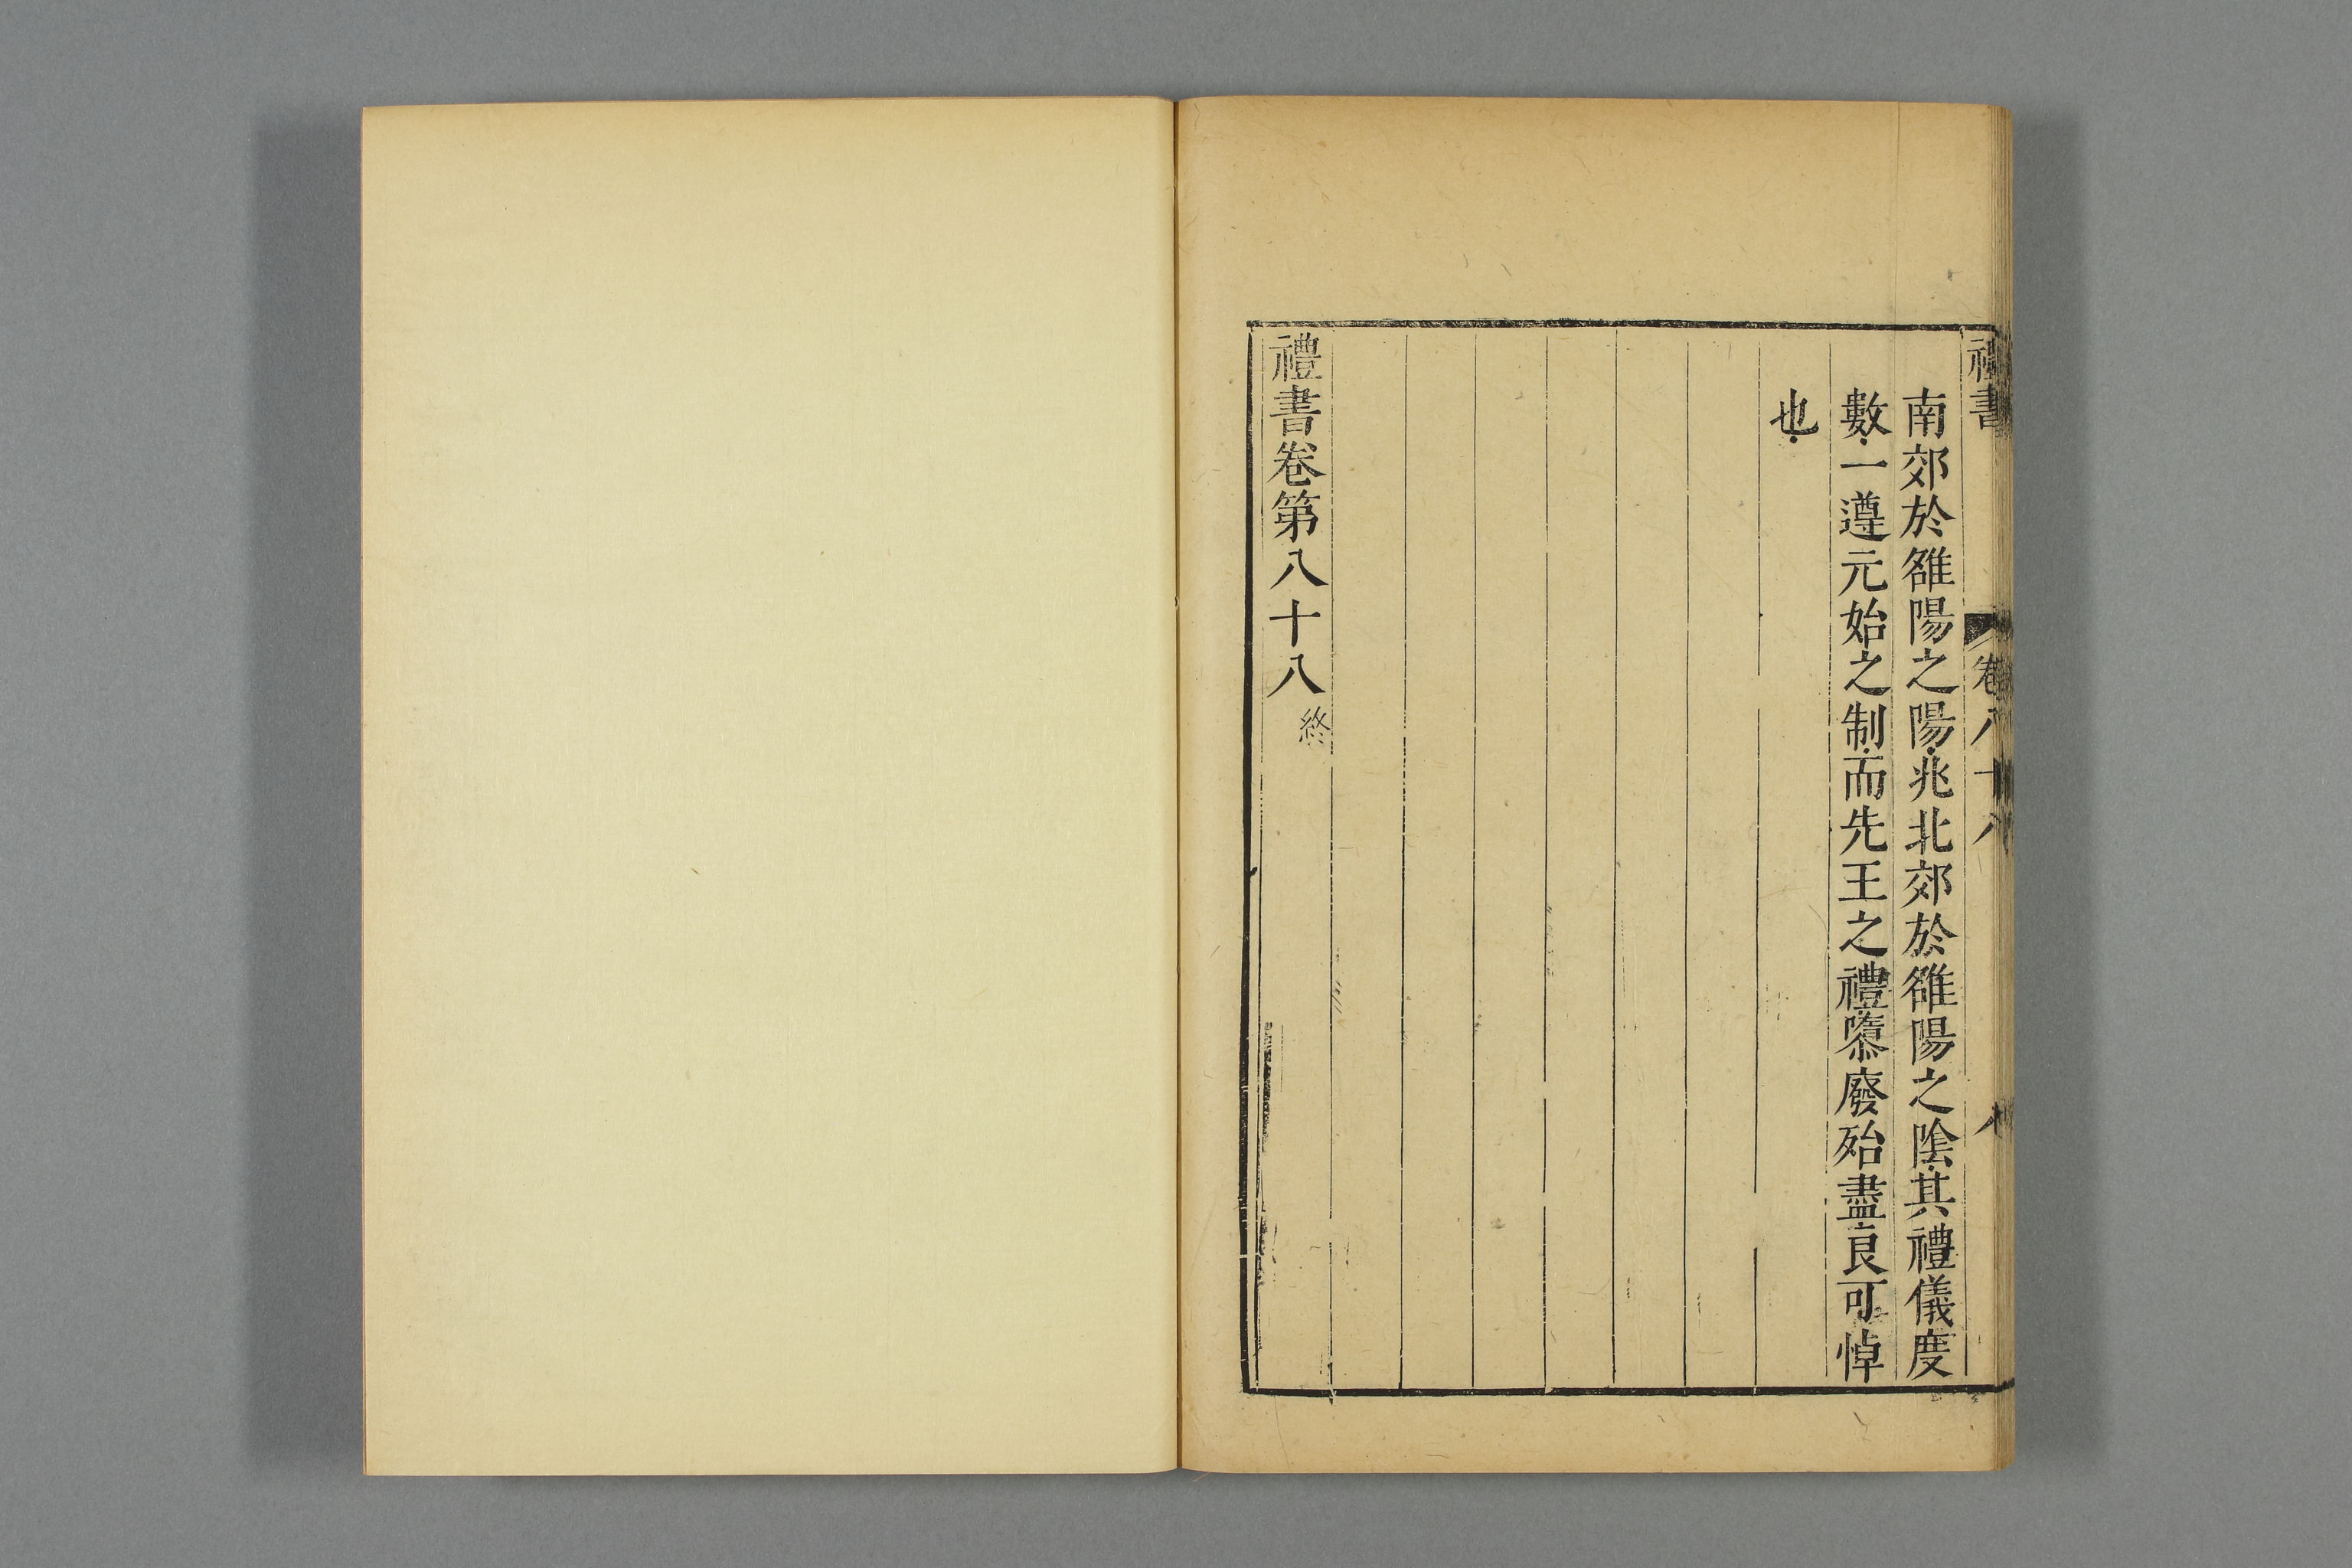 禮書 卷八十八 八
南郊於雒陽之陽兆北郊於雒陽之陰其禮儀度
數一遵元始之制而先王之禮隳廢殆盡良可悼
也
禮書卷第八十八終